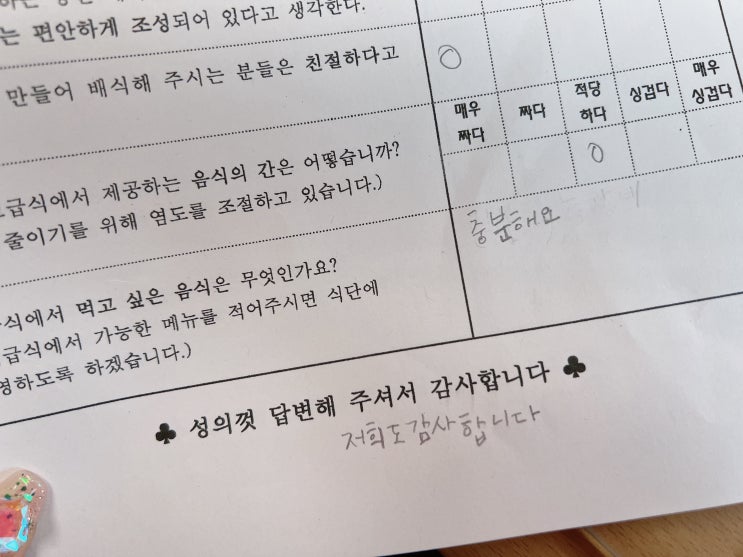 는 편안하게 조성되어 있다고 생각한다.
만들어 배식해 주시는 분들은 친절하다고
○
매우 짜다 적당 싱겁다 매우
짜다 하다 싱겁다
급식에서 제공하는 음식의 간은 어떻습니까?
줄이기를 위해 염도를 조절하고 있습니다.)
○
식에서 먹고 싶은 음식은 무엇인가요?
급식에서 가능한 메뉴를 적어주시면 식단에
영하도록 하겠습니다.)
충분해요
♣ 성의껏 답변해 주셔서 감사합니다 ♣
저희도감사합니다